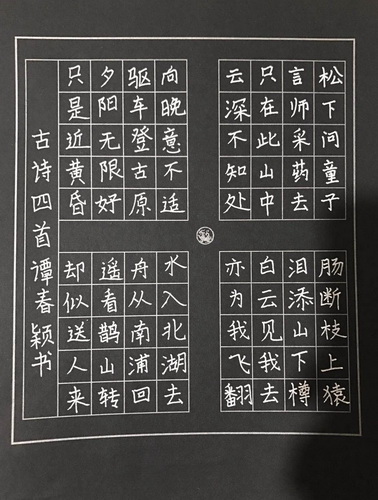 松下问童子
言师采药去
只在此山中
云深不知处
向晚意不适
驱车登古原
夕阳无限好
只是近黄昏
肠断枝上猿
泪添山下樽
白云见我去
亦为我飞翻
水入北湖去
舟从南浦回
遥看鹊山转
却似送人来
古诗四首谭春颖书